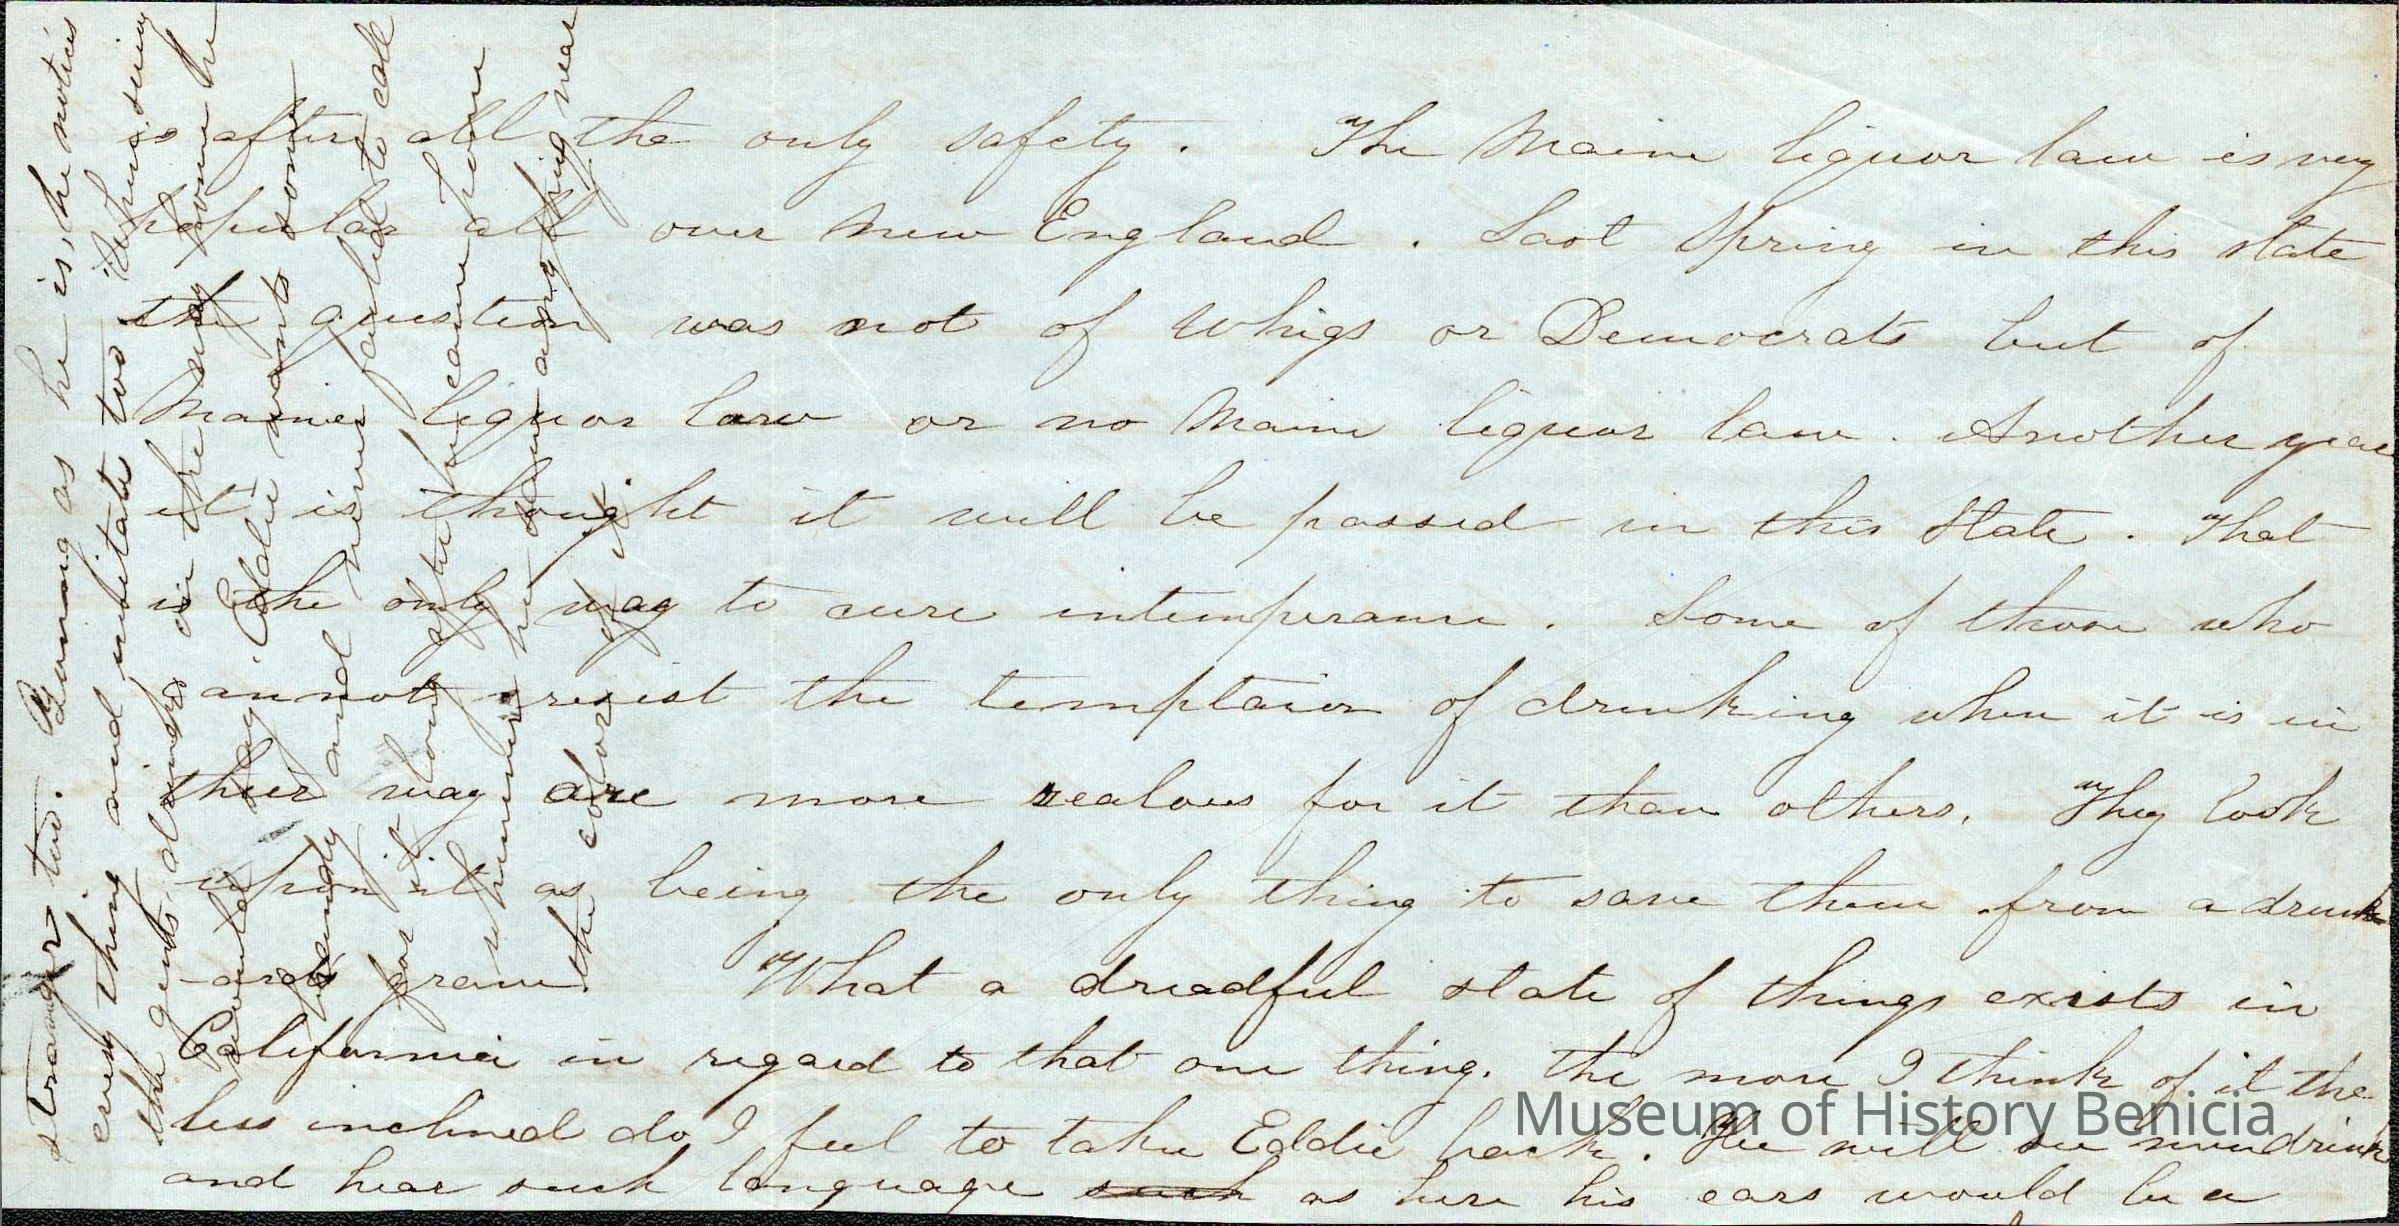 is after all the only safety. The Maine liquor law is very
popular all over New England. Last Spring in this state
the question was not of Whigs or Democrats but of
Maine liquor law or no Maine liquor law. Another year
it is thought it will be passed in this State. That
is the only way to cure intemperance. Some of those who
cannot resist the temptaion of drinking when it is in
their way are more zealous for it than others. They look
upon it as being the only thing to save them from a drunk
-ards grave. What a dreadful state of things exists in
California in regard to that one thing. The more I think of it the
less inclined do I feel to take Eddie back. He will see men drink
and hear such language such as here his ears would be a
stranger two. Cunning as he is, he notices
every thing and imitates too. When seeing
the gents drinks in the
would say. "Eddie wants some
brandy" and Hermie called to call
for it long after he came home
whenever he saw any thing near
the color of it
Museum of History Benicia